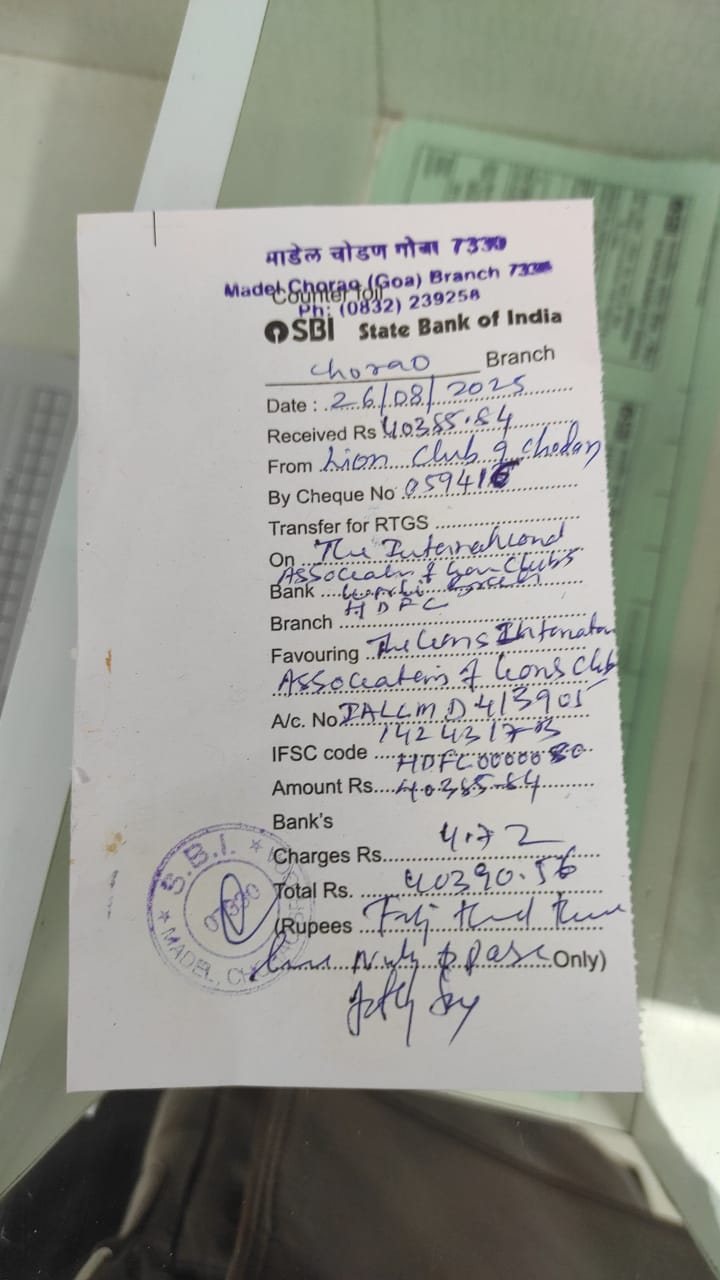 माडेल चोडण गोवा 7330
Madel Chorao (Goa) Branch 7330
Ph: (0832) 239258
Counter foil
SBI State Bank of India
Chorao Branch
Date : 26/08/2025
Received Rs 40385.84
From Lion Club of Chodan
By Cheque No 059416
Transfer for RTGS
On The International
Association of Lions Clubs
Bank
HDFC
Branch
Favouring The Lions Internation
Association of Lions Club
A/c. No IALCMD413905
142431703
IFSC code HDFC0000080
Amount Rs. 40385.84
Bank's
Charges Rs. 4.72
Total Rs. 40390.56
(Rupees
Only)
S.B.I.
07330
MADEL, CHORAO